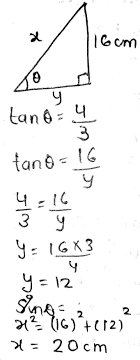 x
16cm
θ
y
tanθ = 4/3
tanθ = 16/y
4/3 = 16/y
y = 16×3/y
y = 12
Sinθ =
x² = (16)² + (12)²
x = 20cm